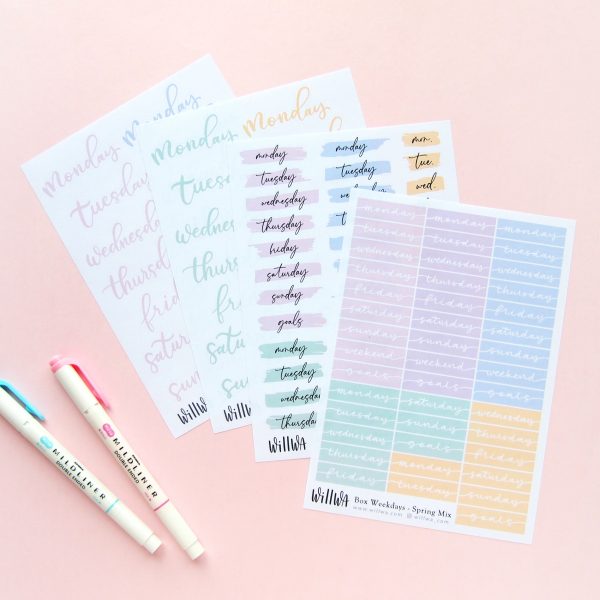 monday
tuesday
wednesd
thurs
frid
satur
sun
WiLLWA
monday
monday
tuesday
wednesday
thursd
frid
satur
sund
WiLLWA
monday
tuesday
wednesday
thursday
friday
saturday
sunday
goals
monday
tuesday
wednesday
thursday
WiLLWA
monday
tuesday
mon.
tue.
wed.
monday
tuesday
wednesday
thursday
friday
saturday
sunday
weekend
goals
monday
tuesday
wednesday
thursday
friday
monday
tuesday
wednesday
thursday
friday
saturday
sunday
weekend
goals
saturday
sunday
goals
monday
tuesday
monday
tuesday
wednesday
thursday
friday
saturday
sunday
weekend
goals
wednesday
thursday
friday
saturday
sunday
goals
WiLLWA
Box Weekdays - Spring Mix
www.willwa.com @willwa_com
MILDLINER
DOUBLE ENDED
MILDLINER
DOUBLE ENDED